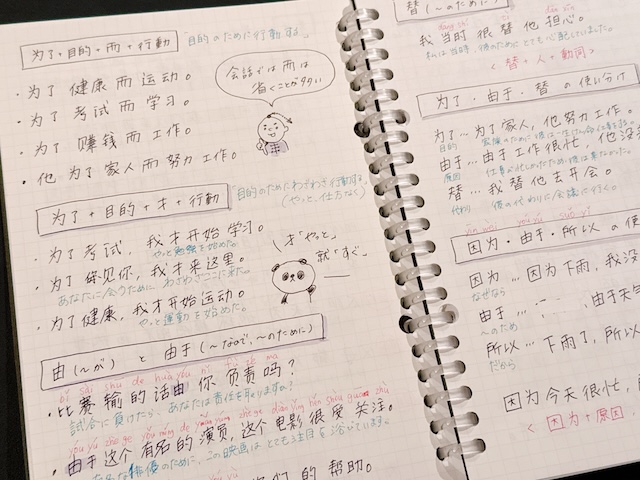 为了・目的・而+行動
「目的のために行動する」
・为了健康而运动。
・为了考试而学习。
・为了赚钱而工作。
・他为了家人而努力工作。
会話では而は
省くことが多い
为了+目的+才+行動
「目的のためにわざわざ行動する」
(やっと、仕方なく)
・为了考试，我才开始学习。
やっと勉強を始めた。
・为了你见你，我才来这里。
あなたに会うために、わざわざここに来た。
・为了健康，我才开始运动。
やっと運動を始めた。
才「やっと」
就「すぐ」
由(〜が) と 由于(〜なので、〜のために)
bǐ sài shū de huà yóu nǐ fù zé ma
・比赛输的话由你负责吗？
試合に負けたら、あなたは責任を取りますか？
・由于这个有名的演员，这个电影很受关注。
有名な俳優のために、この映画はとても注目を浴びています。
们的帮助。
替(〜のために)
我当时很替他担心。
私は当時、彼のためにとても心配していました。
<替+人+動詞>
为了・由于・替 の使い分け
为了…为了家人，他努力工作。
目的
由于…由于工作很忙，他没
原因
替…我替他去开会。
代わり 彼の代わりに会議に行く。
因为・由于・所以 の使
因为…因为下雨，我没
なぜなら
由于… 由于天气
〜のため
所以…下雨了，所以
だから
因为今天很忙，
<因为+原因